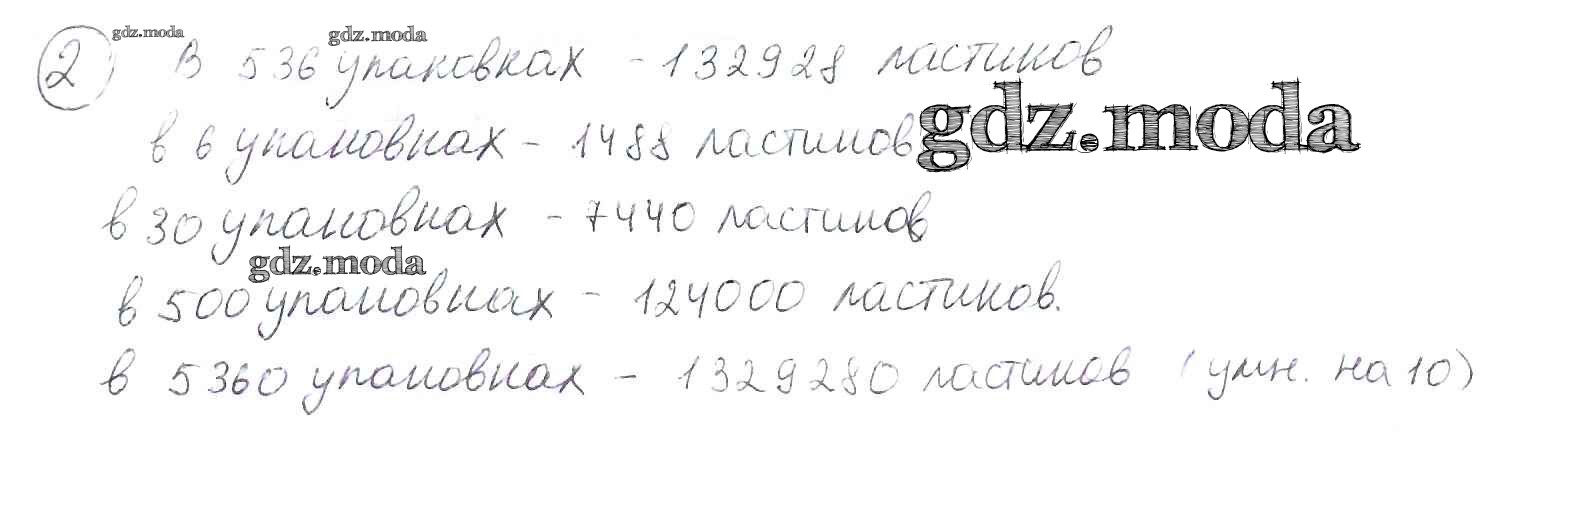 gdz.moda gdz.moda
2 В 536 упаковках - 132928 ластиков
gdz.moda
в 6 упаковках - 1488 ластиков
в 30 упаковках - 7440 ластиков
gdz.moda
в 500 упаковках - 124000 ластиков.
в 5360 упаковках - 1329280 ластиков (умн. на 10)